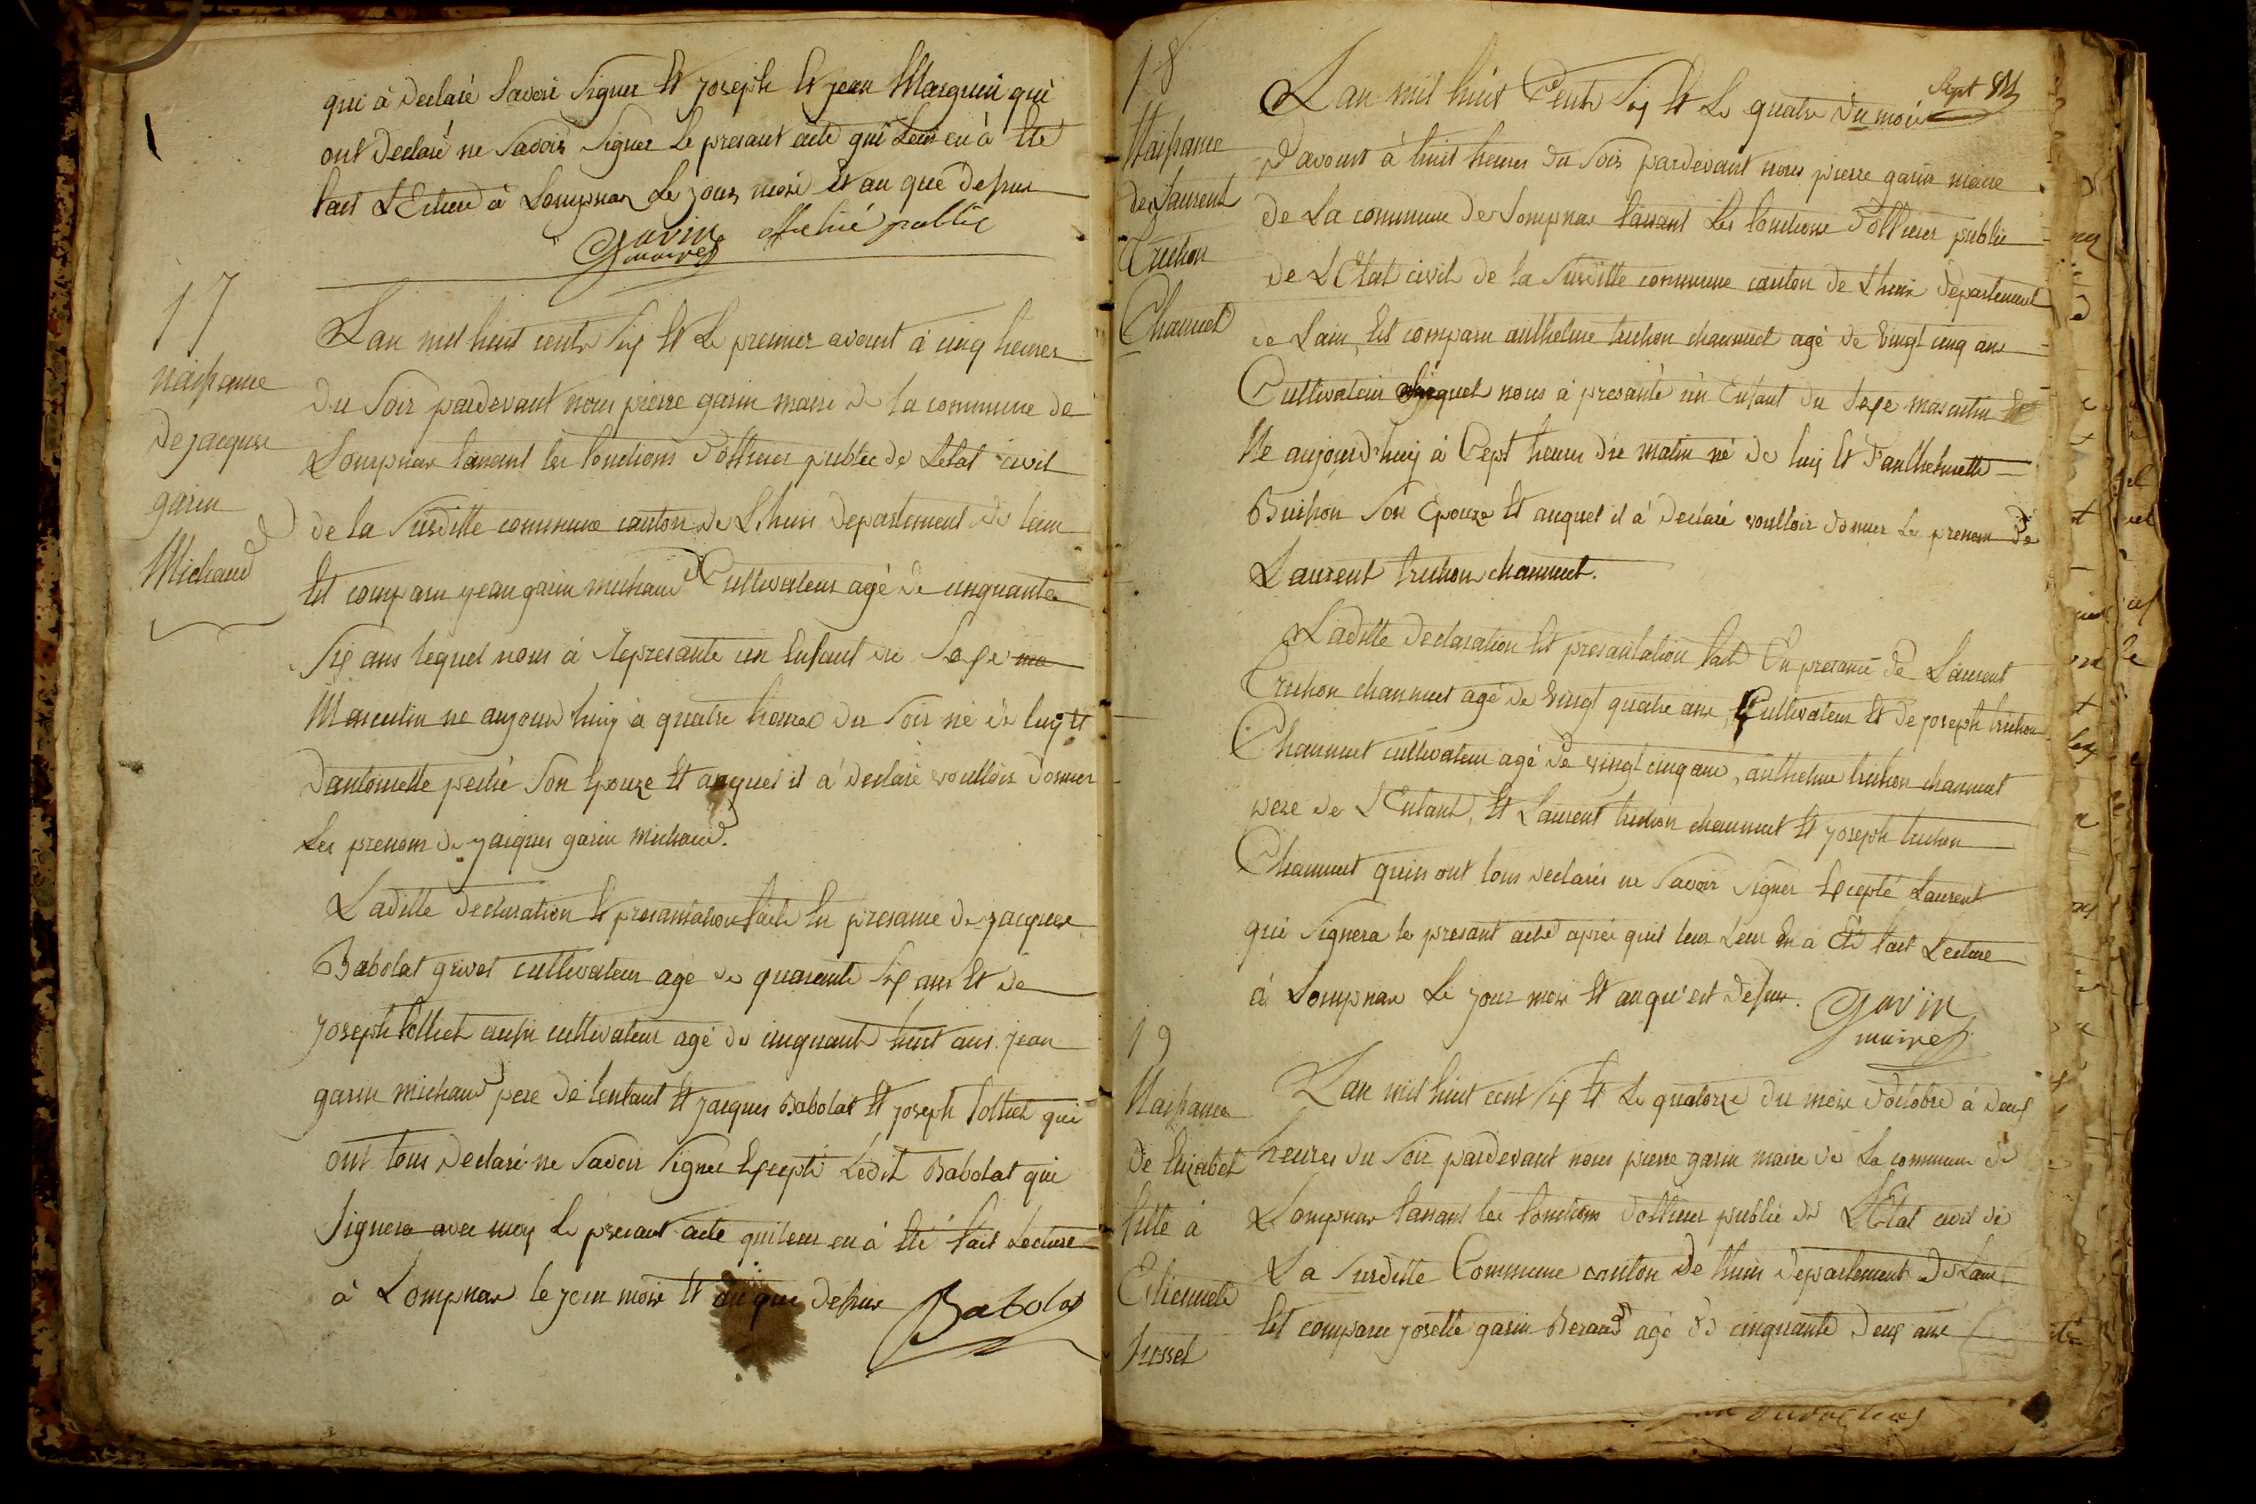 qui à declaré Savoir Signer Et joseph Et jean Marquin qui
ont Declaré ne Savoir Signer Le presant acte qui Leur en à Eté
fait LEcture à Lompnas Le jour mois Et an que Dessus
Garin officié public
maire
17
naissance
De jacques
garin
Michaud
Lan mil huit cents Six Et Le premier avoust à cinq heures
Du Soir pardevant nous pierre garin maire de la commune de
Lompnas faisant les fonctions dofficier public de Letat civil
de la Susditte commune canton de Lhuis departement de lain
Est comparu jean garin michaud Cultivateur agé de cinquante
Six ans lequel nous à represanté un Enfant du Sexe ma
Masculin né aujourd huy à quatre heures du Soir né de luy Et
dantoinette peclié Son Epouze Et auquel il a declaré voulloir donner
Les prenom de jacques garin michaud.
Laditte declaration Et presantation faite En presance de jacques
Babolat grivet cultivateur agé de quarante Six ans Et de
joseph folliet aussi cultivateur agé de cinquante huit ans. jean
garin michaud pere de lenfant Et jacques Babolat Et joseph folliet qui
ont tous declaré ne Savoir Signer Excepté Ledit Babolat qui
Signera avec moy Le presant acte qui leur en à Eté fait Lecture
à Lompnas le jour mois Et an que dessus Babolat
18
Naissance
de Laurent
Truchon
Chanuet
Sept M
Lan mil huit Cents Six Et Le quatre du mois
Davoust à huit heures du Soir pardevant nous pierre garin maire
de La commune de Lompnas faisant Les fonctions dofficier public
de LEtat civil de la Susditte commune canton de Lhuis departement
de Lain, Est comparu anthelme truchon chanuet agé de vingt cinq ans
Cultivateur lequel nous à presanté un Enfant du Sexe masculin
Né aujourd'huy à Cept heures du matin né de luy Et d'anthelmette
Buisson Son Epouze Et auquel il à declaré voulloir donner Le prenom de
Laurent truchon chanuet.
Laditte declaration Et presantation fait En presance de Laurent
Truchon chanuet agé de vingt quatre ans, Cultivateur Et de joseph truchon
Chanuet cultivateur agé de vingt cinq ans, anthelme truchon chanuet
pere de LEnfant, Et Laurent truchon chanuet Et joseph truchon
Chanuet qui n ont tous declarés ne Savoir Signer Excepté Laurent
qui Signera le presant acte aprés quil leur Leur En a Eté fait Lecture
à Lompnas Le jour mois Et an qu'est dessus. Garin
maire
19
Naissance
de Elizabet
fille à
Etiennete
trosset
Lan mil huit cent Six Et Le quatorze du mois doctobre à deux
heures du Soir pardevant nous pierre garin maire de La commune de
Lompnas faisant les fonctions dofficier public de LEtat civil de
La Susditte Commune canton de Lhuis departement de Lain
Est comparu josette garin Beraud agé de cinquante deux ans